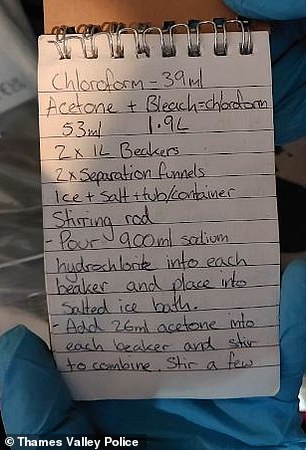 Chloroform - 39ml
Acetone + Bleach = chloroform
53ml 1.9L
2 x 1L Beakers
2 x Separation funnels
Ice + Salt + tub/container
Stirring rod
- Pour 900ml sodium
hydrochlorite into each
beaker and place into
salted ice bath.
- Add 26ml acetone into
each beaker and stir
to combine. Stir a few
© Thames Valley Police